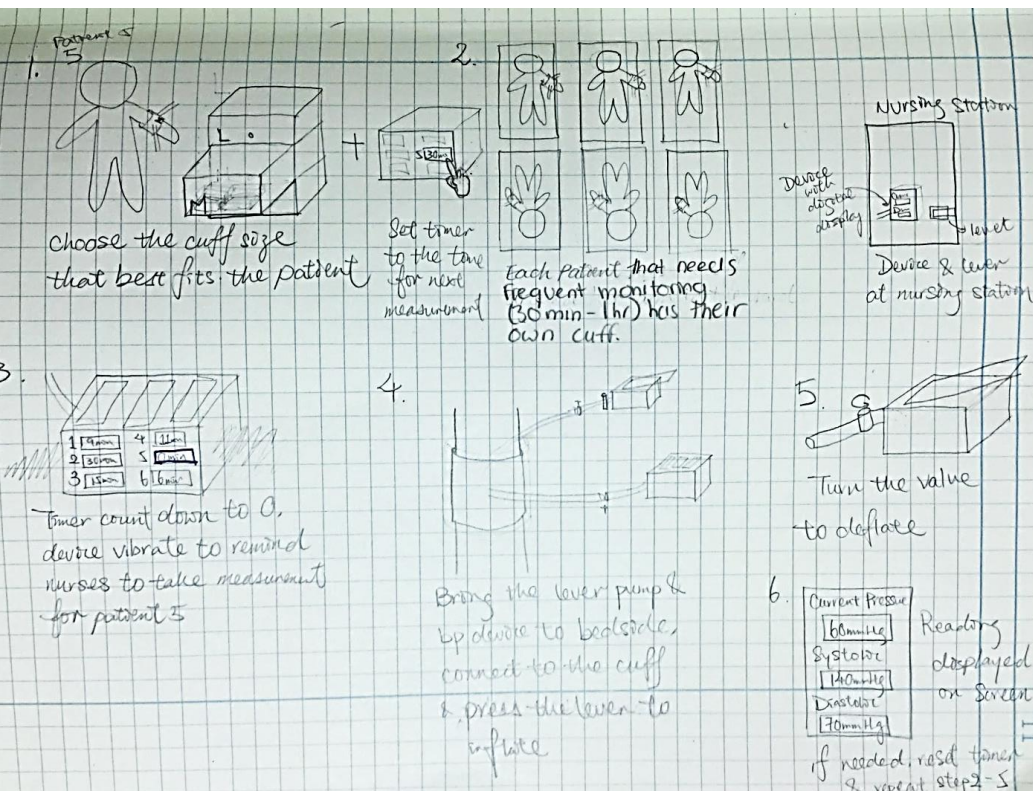 Patient 5
5
1.
L
+
5 30min
Choose the cuff size
that best fits the patient
Set timer
to the time
for next
measurement
2.
Each Patient that needs
frequent monitoring
(30min-1hr) has their
own cuff.
Nursing Station
Device
with
digital
display
lever
Device & lever
at nursing station
3.
1 9min 4 11min
2 30min 5 0min
3 15min 6 6min
Timer count down to 0,
device vibrate to remind
nurses to take measurement
for patient 5
4.
Bring the lever pump &
bp device to bedside,
connect to the cuff
& press the lever to
inflate
5.
Turn the value
to deflate
6.
Current Pressure
60mmHg
Systolic
140mmHg
Diastolic
70mmHg
Reading
displayed
on screen
if needed, reset timer
& repeat step 2-5